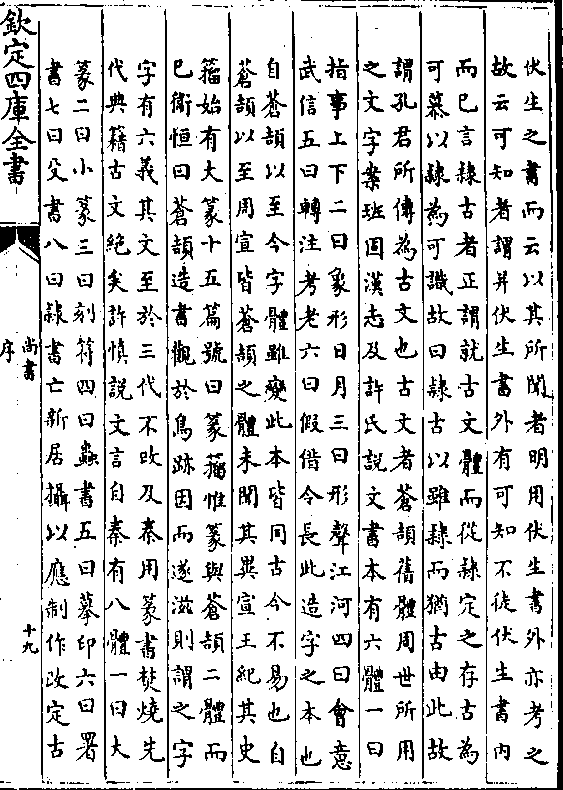 伏生之書而云以其所聞者明用伏生書外亦考之
故云可知者謂并伏生書外有可知不徒伏生書内
而已言隸古者正謂就古文體而從隸定之存古為
可慕以隸為可識故曰隸古以雖隸而猶古由此故
謂孔君所傳為古文也古文者蒼頡舊體周世所用
之文字案班固漢志及許氏說文書本有六體一曰
指事上下二曰象形日月三曰形聲江河四曰會意
武信五曰轉注考老六曰假借令長此造字之本也
自蒼頡以至今字體雖變此本皆同古今不易也自
蒼頡以至周宣皆蒼頡之體未聞其異宣王紀其史
籀始有大篆十五篇號曰篆籀惟篆與蒼頡二體而
已衛恒曰蒼頡造書觀於鳥跡因而遂滋則謂之字
字有六義其文至於三代不改及秦用篆書焚燒先
代典籍古文絶矣許慎說文言自秦有八體一曰大
篆二曰小篆三曰刻符四曰蟲書五曰摹印六曰署
書七曰殳書八曰隸書亡新居攝以應制作改定古
欽定四庫全書
尚書
序
十九